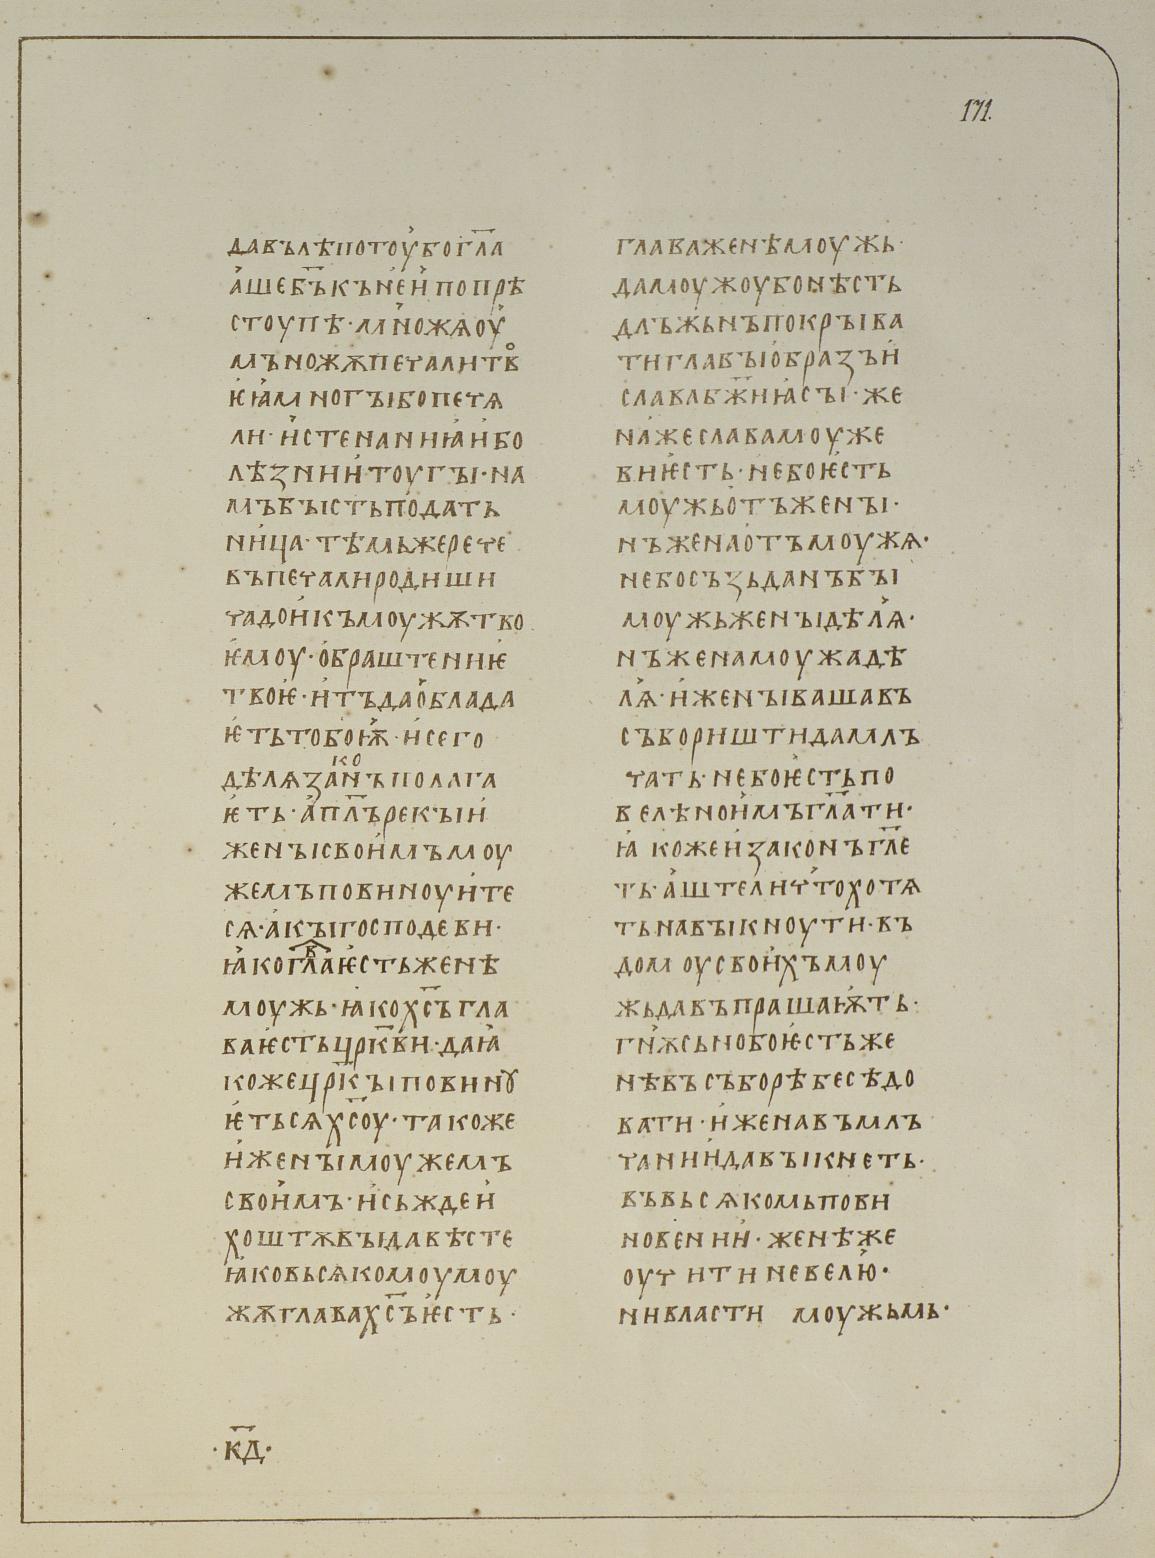 171.
давълѣпотоубогл҃а
ашеб҃ъкънеипопрѣ
стоупѣ·множѧоу
мъножѫпечалитв
ѥꙗмногꙑбопечѧ
ли·истенаниꙗибо
лѣзнии·тоугꙑ·на
мъбꙑстьподать
ница·тѣмьжерече
въпечалиродиши
чадоикъмоужѫтво
ѥмоу·обраштениѥ
твоѥ·итъдаоблада
ѥтьтобоѭ·исего
ко
дѣлѧзанъполага
ѥть·апл҃ърекꙑи
женꙑсвоимъмоу
жемъповиноуите
сѧ·акꙑгосподеви·
в
ꙗкоглаѥстьженѣ
моужь·ꙗкох҃съгла
ваѥстьцр҃кви·даꙗ
кожецр҃кꙑповинꙋ
ѥтьсѧх҃соу·такоже
иженꙑмоужемъ
своимъ·исьждеи
хоштѫвꙑдавѣсте
ꙗковьсѧкомоумоу
жѫглавах҃съѥсть·
·к҃д·
главаженѣмоужь·
дамоужоубонѣсть
длъжьнъпокрꙑва
тиглавꙑобразъи
славабж҃иꙗсꙑ·же
нажеславамоуже
виѥсть·небоѥсть
моужьотъженꙑ·
нъженаотъмоужѧ·
небосъзьданъбꙑ
моужьженꙑдѣлѧ·
нъженамоужадѣ
лѧ·иженꙑвашавъ
събориштидамлъ
чать·небоѥстьпо
велѣноимъгл҃ати·
ꙗкожеизаконъгл҃е
ть·аштеличтохотѧ
тьнавꙑкноути·въ
домоусвоихъмоу
жьдавъпрашаѭть·
гнѫсьнобоѥстьже
нѣвъсъборѣбесѣдо
вати·иженавъмлъ
чаниидавꙑкнеть·
въвьсѧкомьпови
новении·женѣже
оучитиневелю·
нивласти моужьмь·